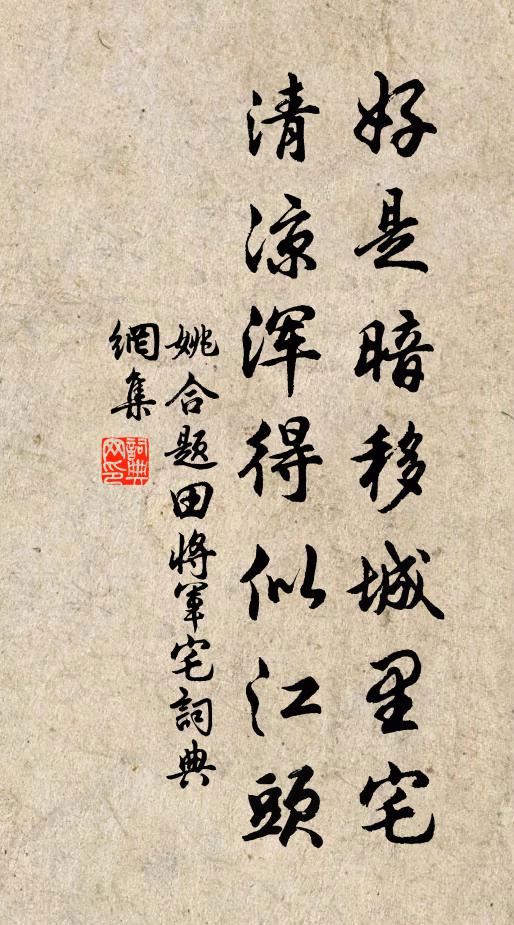 好是暗移城里宅
清凉浑得似江頭
姚合题田将軍宅詞典
網集
詞典
网印